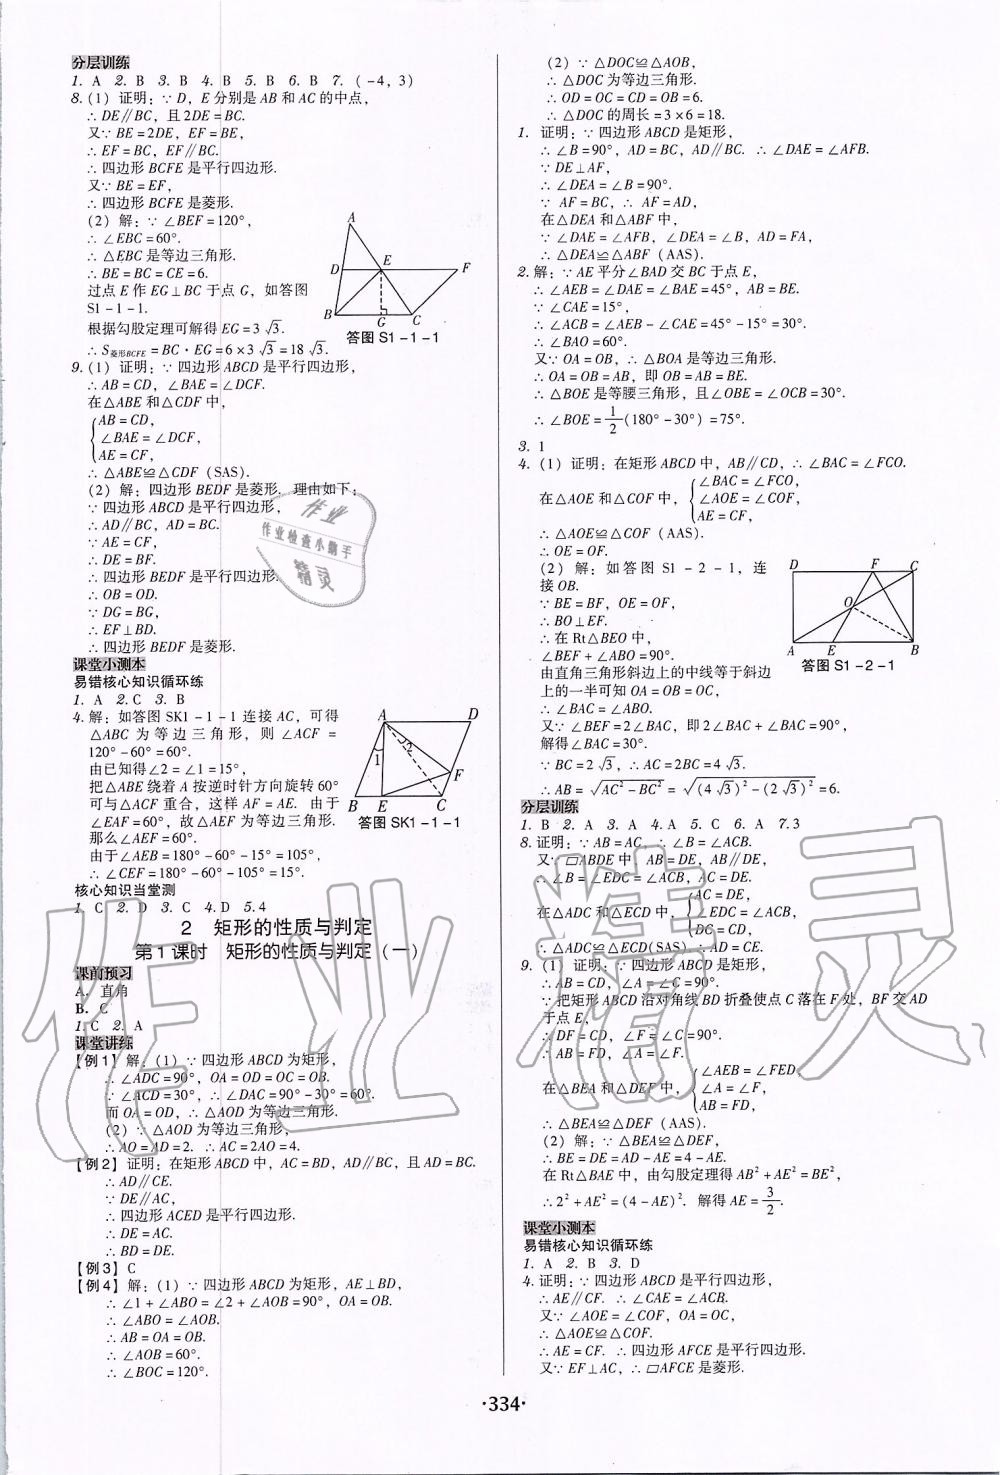 分层训练
1. A 2. B 3. B 4. B 5. B 6. B 7. (－4，3)
8. (1) 证明：∵ D，E 分别是 AB 和 AC 的中点，
∴ DE∥BC，且 2DE＝BC.
又∵ BE＝2DE，EF＝BE，
∴ EF＝BC，EF∥BC.
∴ 四边形 BCFE 是平行四边形.
又∵ BE＝EF，
∴ 四边形 BCFE 是菱形.
(2) 解：∵ ∠BEF＝120°，
∴ ∠EBC＝60°.
∴ △EBC 是等边三角形.
∴ BE＝BC＝CE＝6.
过点 E 作 EG⊥BC 于点 G，如答图
S1－1－1.
根据勾股定理可解得 EG＝3√3.
∴ S菱形BCFE＝BC·EG＝6×3√3＝18√3.
A
D E F
B G C
答图 S1－1－1
9. (1) 证明：∵ 四边形 ABCD 是平行四边形，
∴ AB＝CD，∠BAE＝∠DCF.
在△ABE 和△CDF 中，
AB＝CD，
∠BAE＝∠DCF，
AE＝CF，
∴ △ABE≌△CDF (SAS).
(2) 解：四边形 BEDF 是菱形. 理由如下：
∵ 四边形 ABCD 是平行四边形，
∴ AD∥BC，AD＝BC.
∵ AE＝CF，
∴ DE＝BF.
∴ 四边形 BEDF 是平行四边形.
∴ OB＝OD.
∵ DG＝BG，
∴ EF⊥BD.
∴ 四边形 BEDF 是菱形.
课堂小测本
易错核心知识循环练
1. A 2. C 3. B
4. 解：如答图 SK1－1－1 连接 AC，可得
△ABC 为等边三角形，则∠ACF＝
120°－60°＝60°.
由已知得∠2＝∠1＝15°，
把△ABE 绕着 A 按逆时针方向旋转 60°
可与△ACF 重合，这样 AF＝AE. 由于
∠EAF＝60°，故△AEF 为等边三角形.
那么∠AEF＝60°.
由于∠AEB＝180°－60°－15°＝105°，
∴ ∠CEF＝180°－60°－105°＝15°.
A D
1 2
F
B E C
答图 SK1－1－1
核心知识当堂测
1. C 2. D 3. C 4. D 5. 4
2 矩形的性质与判定
第 1 课时 矩形的性质与判定（一）
课前预习
A. 直角
B. C
1. C 2. A
课堂讲练
【例 1】解：(1) ∵ 四边形 ABCD 为矩形，
∴ ∠ADC＝90°，OA＝OD＝OC＝OB.
∵ ∠ACD＝30°，∴ ∠DAC＝90°－30°＝60°.
而 OA＝OD，∴ △AOD 为等边三角形.
(2) ∵ △AOD 为等边三角形，
∴ AO＝AD＝2. ∴ AC＝2AO＝4.
【例 2】证明：在矩形 ABCD 中，AC＝BD，AD∥BC，且 AD＝BC.
∴ AD∥CE.
∵ DE∥AC，
∴ 四边形 ACED 是平行四边形.
∴ DE＝AC.
∴ BD＝DE.
【例 3】C
【例 4】解：(1) ∵ 四边形 ABCD 为矩形，AE⊥BD，
∴ ∠1＋∠ABO＝∠2＋∠AOB＝90°，OA＝OB.
∴ ∠ABO＝∠AOB.
∴ AB＝OA＝OB.
∴ ∠AOB＝60°.
∴ ∠BOC＝120°.
(2) ∵ △DOC≌△AOB，
∴ △DOC 为等边三角形.
∴ OD＝OC＝CD＝OB＝6.
∴ △DOC 的周长＝3×6＝18.
1. 证明：∵ 四边形 ABCD 是矩形，
∴ ∠B＝90°，AD＝BC，AD∥BC. ∴ ∠DAE＝∠AFB.
∵ DE⊥AF，
∴ ∠DEA＝∠B＝90°.
∵ AF＝BC，∴ AF＝AD，
在△DEA 和△ABF 中，
∵ ∠DAE＝∠AFB，∠DEA＝∠B，AD＝FA，
∴ △DEA≌△ABF (AAS).
2. 解：∵ AE 平分∠BAD 交 BC 于点 E，
∴ ∠AEB＝∠DAE＝∠BAE＝45°，AB＝BE.
∵ ∠CAE＝15°，
∴ ∠ACB＝∠AEB－∠CAE＝45°－15°＝30°.
∴ ∠BAO＝60°.
又∵ OA＝OB，∴ △BOA 是等边三角形.
∴ OA＝OB＝AB，即 OB＝AB＝BE.
∴ △BOE 是等腰三角形，且∠OBE＝∠OCB＝30°.
∴ ∠BOE＝1/2(180°－30°)＝75°.
3. 1
4. (1) 证明：在矩形 ABCD 中，AB∥CD，∴ ∠BAC＝∠FCO.
在△AOE 和△COF 中，
∠BAC＝∠FCO，
∠AOE＝∠COF，
AE＝CF，
∴ △AOE≌△COF (AAS).
∴ OE＝OF.
(2) 解：如答图 S1－2－1，连
接 OB.
∵ BE＝BF，OE＝OF，
∴ BO⊥EF.
∴ 在 Rt△BEO 中，
∠BEF＋∠ABO＝90°.
由直角三角形斜边上的中线等于斜边
上的一半可知 OA＝OB＝OC，
∴ ∠BAC＝∠ABO.
又∵ ∠BEF＝2∠BAC，即 2∠BAC＋∠BAC＝90°，
解得∠BAC＝30°.
∵ BC＝2√3，∴ AC＝2BC＝4√3.
∴ AB＝√(AC²－BC²)＝√((4√3)²－(2√3)²)＝6.
D F C
O
A E B
答图 S1－2－1
分层训练
1. B 2. A 3. A 4. A 5. C 6. A 7. 3
8. 证明：∵ AB＝AC，∴ ∠B＝∠ACB.
又∵ ▱ABDE 中，AB＝DE，AB∥DE，
∴ ∠B＝∠EDC＝∠ACB，AC＝DE.
在△ADC 和△ECD 中，
AC＝DE，
∠EDC＝∠ACB，
DC＝CD，
∴ △ADC≌△ECD(SAS). ∴ AD＝CE.
9. (1) 证明：∵ 四边形 ABCD 是矩形，
∴ AB＝CD，∠A＝∠C＝90°.
∵ 把矩形 ABCD 沿对角线 BD 折叠使点 C 落在 F 处，BF 交 AD
于点 E，
∴ DF＝CD，∠F＝∠C＝90°.
∴ AB＝FD，∠A＝∠F.
在△BEA 和△DEF 中，
∠AEB＝∠FED，
∠A＝∠F，
AB＝FD，
∴ △BEA≌△DEF (AAS).
(2) 解：∵ △BEA≌△DEF，
∴ BE＝DE＝AD－AE＝4－AE.
在 Rt△BAE 中，由勾股定理得 AB²＋AE²＝BE²，
∴ 2²＋AE²＝(4－AE)². 解得 AE＝3/2.
课堂小测本
易错核心知识循环练
1. A 2. B 3. D
4. 证明：∵ 四边形 ABCD 是平行四边形，
∴ AE∥CF. ∴ ∠CAE＝∠ACB.
又∵ ∠AOE＝∠COF，OA＝OC，
∴ △AOE≌△COF.
∴ AE＝CF. ∴ 四边形 AFCE 是平行四边形.
又∵ EF⊥AC，∴ ▱AFCE 是菱形.
·334·
作业
作业检查小助手
精灵
作业精灵